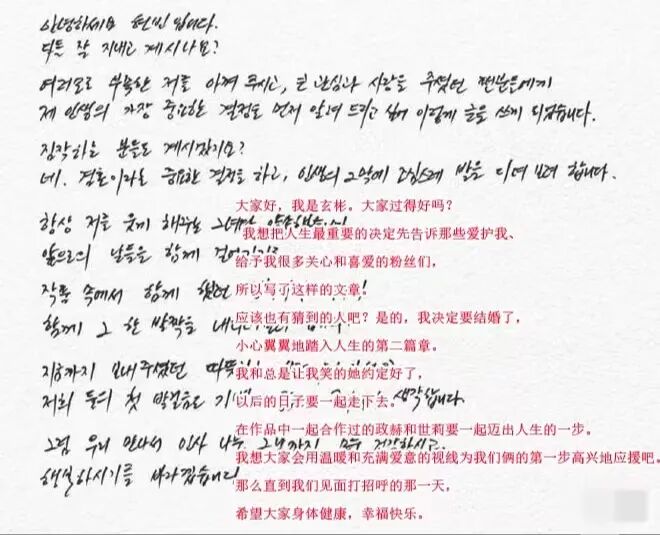 안녕하세요 현빈입니다.
다들 잘 지내고 계시나요?
여러모로 부족한 저를 아껴 주시고, 큰 관심과 사랑을 주셨던 팬분들에게
제 인생의 가장 중요한 결정을 먼저 알려 드리고 싶어 이렇게 글을 쓰게 되었습니다.
짐작하는 분들도 계시겠지요?
네. 결혼이라는 중요한 결정을 하고, 인생의 2막에 조심스레 발을 디뎌 보려 합니다.
항상 저를 웃게 해주는 그녀와
앞으로의 날들을 함께
작품 속에서 함께 했던
함께 그 한 발짝을
지금까지 보내주셨던
저희 둘의 첫 발걸음도 생각합니다.
그럼 우리 만나서 인사 나눌 그날까지 모두 건강하시고
행복하시기를 바라겠습니다
大家好，我是玄彬。大家过得好吗？
我想把人生最重要的决定先告诉那些爱护我、
给予我很多关心和喜爱的粉丝们，
所以写了这样的文章！
应该也有猜到的人吧？是的，我决定要结婚了，
小心翼翼地踏入人生的第二篇章。
我和总是让我笑的她约定好了，
以后的日子要一起走下去。
在作品中一起合作过的政赫和世莉要一起迈出人生的一步。
我想大家会用温暖和充满爱意的视线为我们俩的第一步高兴地应援吧。
那么直到我们见面打招呼的那一天，
希望大家身体健康，幸福快乐。